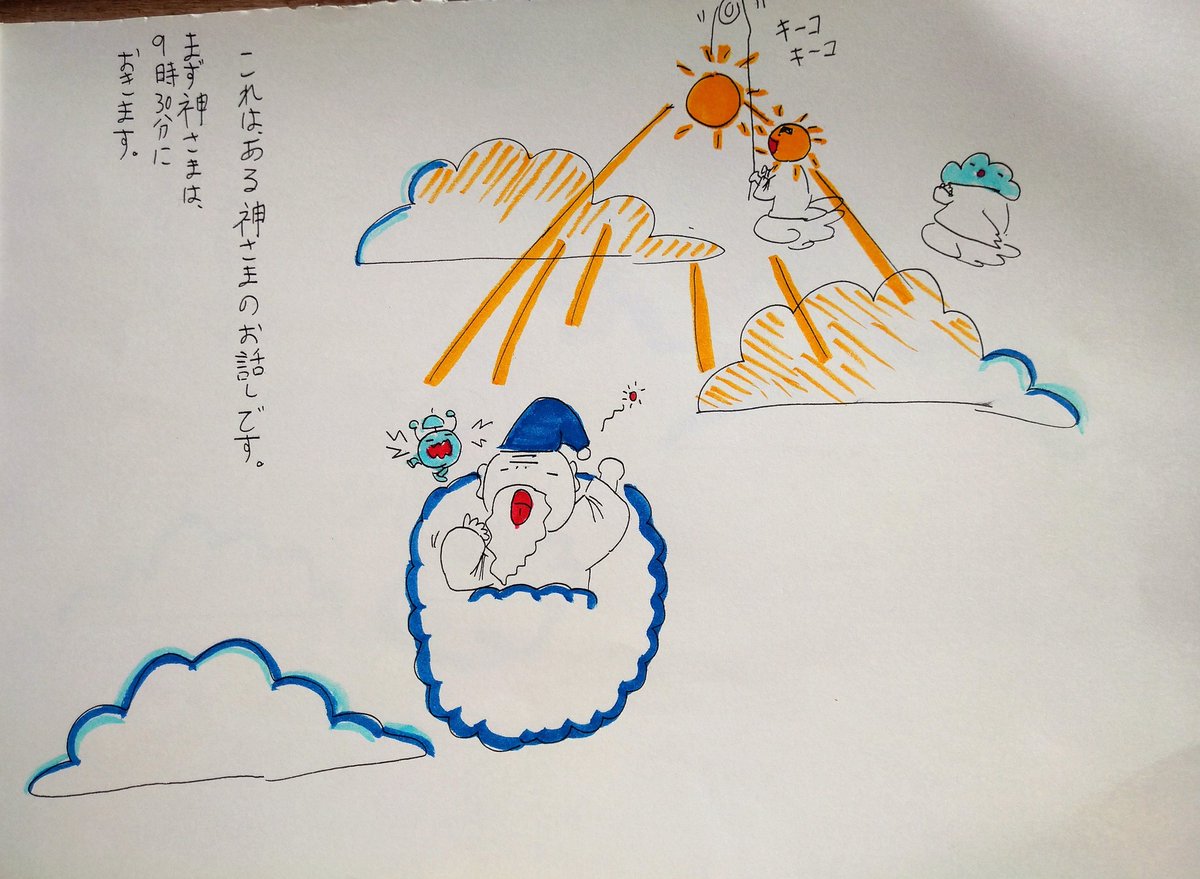 これは、ある神さまのお話しです。
まず神さまは、
9時30分に
おきます。
キーコ
キーコ